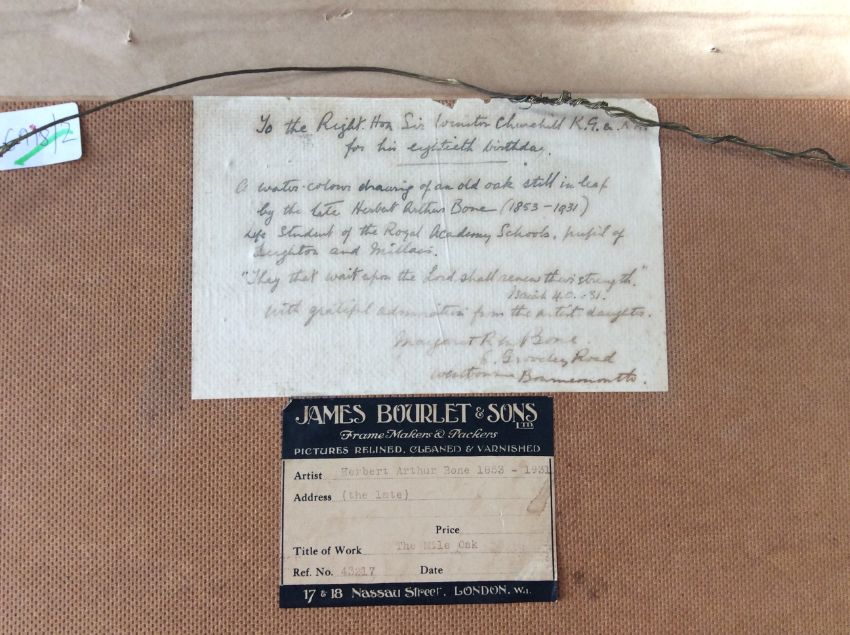 6998/2
To the Right. Hon Sir Winston Churchill K.G. &.
for his eightieth birthday.
A water-colour drawing of an old oak still in leaf
by the late Herbert Arthur Bone (1853-1931)
Student of the Royal Academy Schools, pupil of
Leighton and Millais.
"They that wait upon the Lord shall renew their strength."
Isaiah 40. .31.
with grateful admiration from the artist daughter.
Margaret Bone.
Road
Westbourne Bournemouth.
JAMES BOURLET & SONS LTD
Frame Makers & Packers
PICTURES RELINED, CLEANED & VARNISHED
Artist Herbert Arthur Bone 1853 - 1931
Address (the late)
Price
Title of Work The Mile Oak
Ref. No. 43217 Date
17 & 18 Nassau Street, LONDON, W.1.